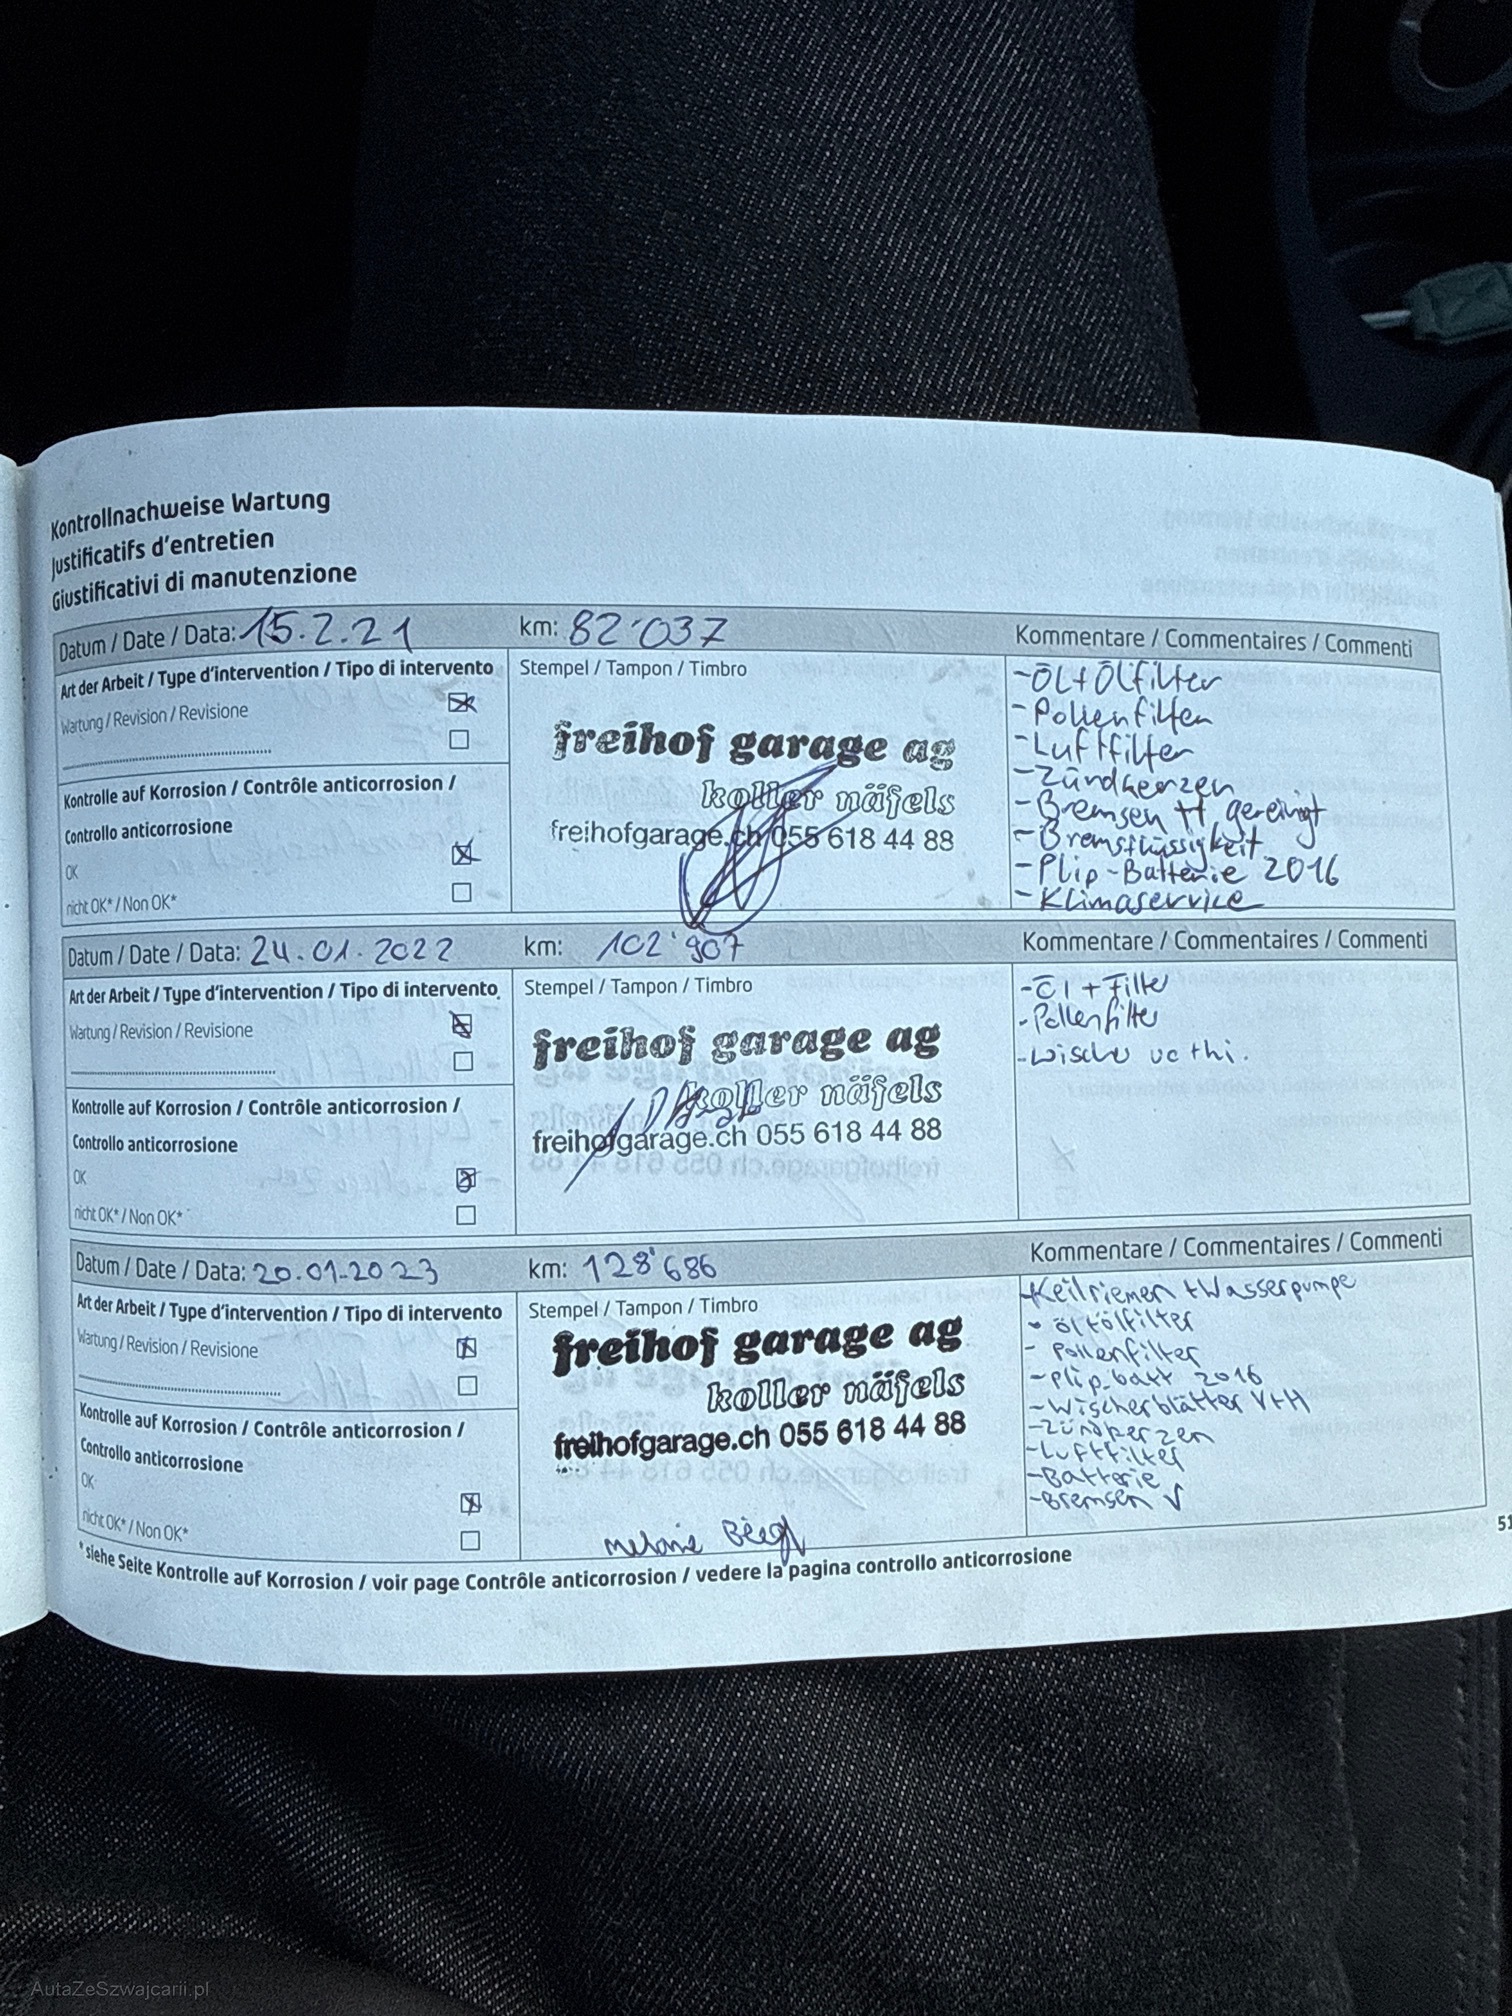 Kontrollnachweise Wartung
Justificatifs d'entretien
Giustificativi di manutenzione
Datum / Date / Data: 15.2.21 km: 82'037 Kommentare / Commentaires / Commenti
Art der Arbeit / Type d'intervention / Tipo di intervento
Wartung / Revision / Revisione
Kontrolle auf Korrosion / Contrôle anticorrosion /
Controllo anticorrosione
OK
nicht OK* / Non OK*
Stempel / Tampon / Timbro
freihof garage ag
koller näfels
freihofgarage.ch 055 618 44 88
- Öl + Ölfilter
- Pollenfilter
- Luftfilter
- Zündkerzen
- Bremsen H gereinigt
- Bremsflüssigkeit
- Plip-Batterie 2016
- Klimaservice
Datum / Date / Data: 24.01.2022 km: 102'907 Kommentare / Commentaires / Commenti
Art der Arbeit / Type d'intervention / Tipo di intervento
Wartung / Revision / Revisione
Kontrolle auf Korrosion / Contrôle anticorrosion /
Controllo anticorrosione
OK
nicht OK* / Non OK*
Stempel / Tampon / Timbro
freihof garage ag
koller näfels
freihofgarage.ch 055 618 44 88
- Öl + Filter
- Pollenfilter
- Wischer
Datum / Date / Data: 20.01.2023 km: 128'686 Kommentare / Commentaires / Commenti
Art der Arbeit / Type d'intervention / Tipo di intervento
Wartung / Revision / Revisione
Kontrolle auf Korrosion / Contrôle anticorrosion /
Controllo anticorrosione
OK
nicht OK* / Non OK*
Stempel / Tampon / Timbro
freihof garage ag
koller näfels
freihofgarage.ch 055 618 44 88
Melanie
- Keilriemen + Wasserpumpe
- öl+ölfilter
- Pollenfilter
- Plip.batt 2016
- Wischerblätter V+H
- Zündkerzen
- Luftfilter
- Batterie
- Bremsen √
* siehe Seite Kontrolle auf Korrosion / voir page Contrôle anticorrosion / vedere la pagina controllo anticorrosione
51
AutaZeSzwajcarii.pl